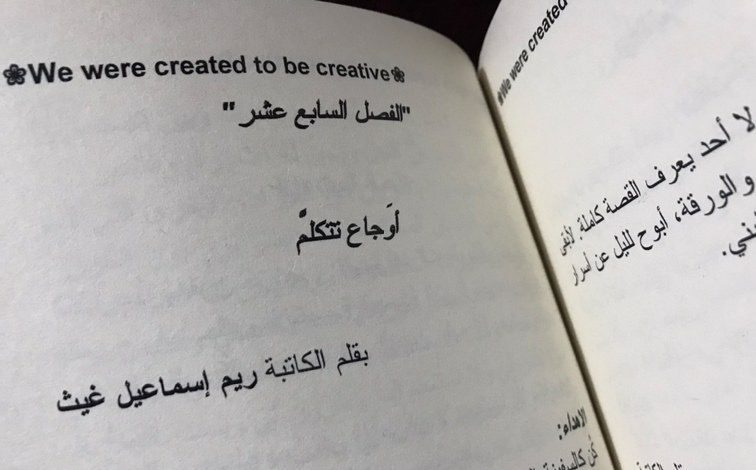 ❀We were created to be creative❀
"الفصل السابع عشر"
أوَجاع تتكلمّ
بقلم الكاتبة ريم إسماعيل غيث
❀We were created
لا أحد يعرف القصة كاملة.
و الورقة، أبوح لليل عن أسرار
الاهداء:
كُن